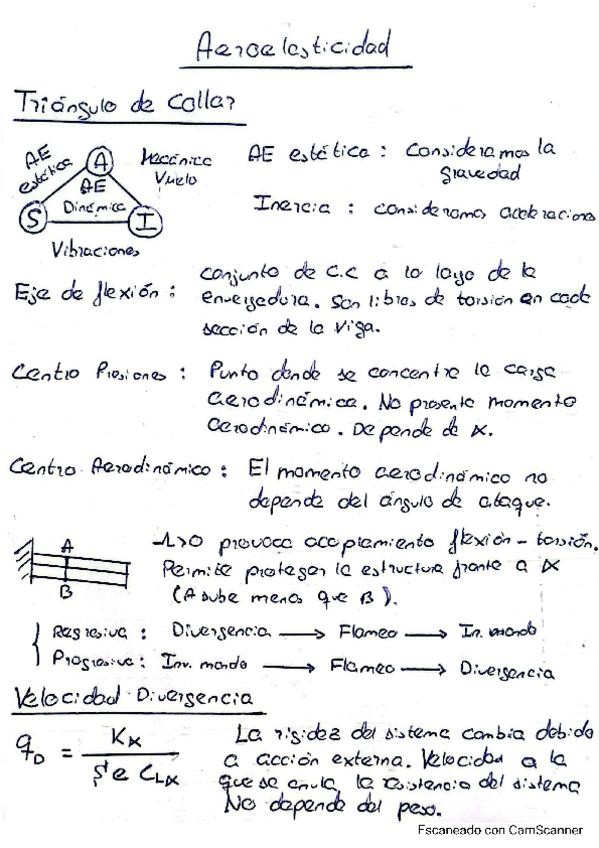 Aeroelasticidad
Triángulo de Collar
AE estática
A
Mecánica Vuelo
AE
Dinámica
S
I
Vibraciones
AE estática : Consideramos la gravedad
Inercia : consideramos aceleraciones
Eje de flexión : conjunto de C.C a lo largo de la
envergadura. Son libres de torsión en cada
sección de la viga.
Centro Presiones : Punto donde se concentra la carga
aerodinámica. No presenta momento
aerodinámico. Depende de α.
Centro Aerodinámico : El momento aerodinámico no
depende del ángulo de ataque.
A
B
Λ>0 provoca acoplamiento flexión - torsión.
Permite proteger la estructura frente a α
(A sube menos que B).
Regresiva : Divergencia → Flameo → In. mando
Progresiva : Inv. mando → Flameo → Divergencia
Velocidad Divergencia
q_D = Kα / S e C_Lα
La rigidez del sistema cambia debido
a acción externa. Velocidad a la
que se anula la resistencia del sistema
No depende del peso.
Escaneado con CamScanner